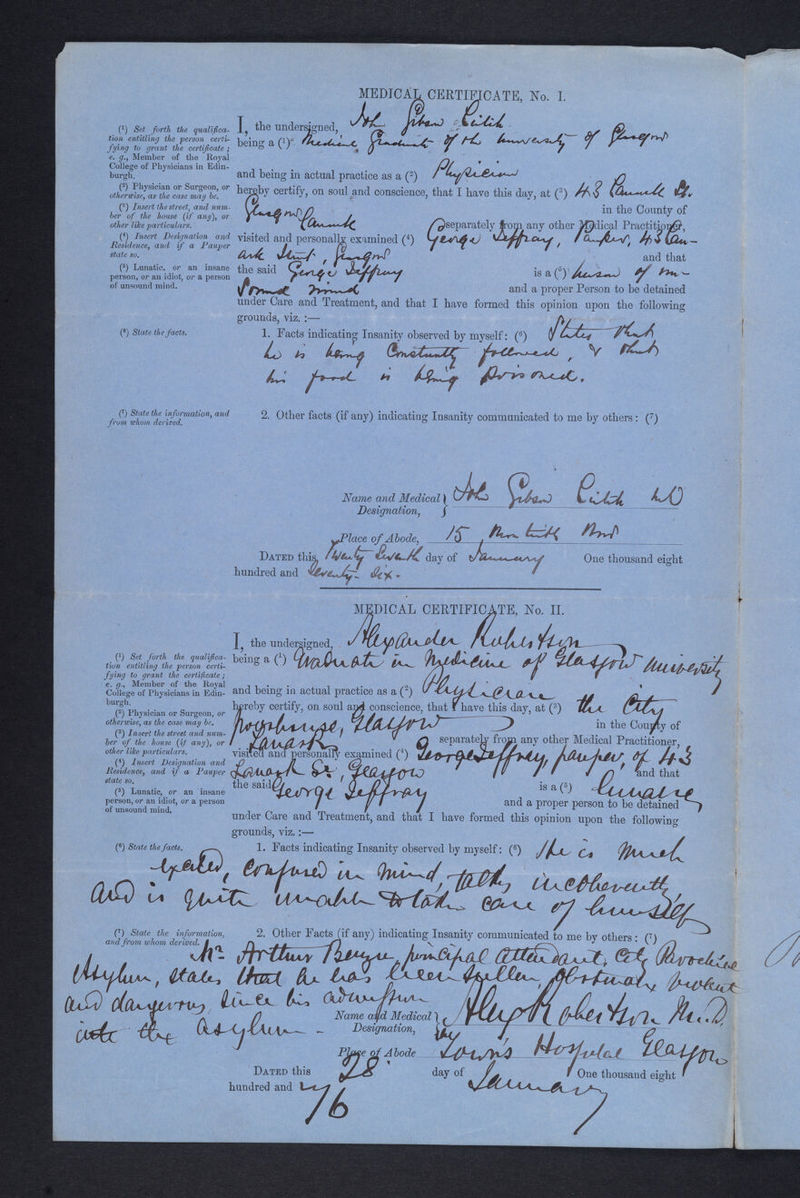 MEDICAL CERTIFICATE, No. I.
(¹) Set forth the qualifica-
tion entitling the person certi-
fying to grant the certificate;
e. g., Member of the Royal
College of Physicians in Edin-
burgh.
(²) Physician or Surgeon, or
otherwise, as the case may be.
(³) Insert the street, and num-
ber of the house (if any), or
other like particulars.
(⁴) Insert Designation and
Residence, and if a Pauper
state so.
(⁵) Lunatic, or an insane
person, or an idiot, or a person
of unsound mind.
I, the undersigned, John Gibson Leitch
being a (¹) Medical Graduate of the University of Glasgow
and being in actual practice as a (²) Physician
hereby certify, on soul and conscience, that I have this day, at (³) 43 Lanark St.
Glasgow in the County of
Lanark separately from any other Medical Practitioner,
visited and personally examined (⁴) George Jeffray, Pauper, 43 Lan-
ark Street, Glasgow and that
the said George Jeffray is a (⁵) person of un-
sound mind and a proper Person to be detained
under Care and Treatment, and that I have formed this opinion upon the following
grounds, viz. :—
(⁶) State the facts.
1. Facts indicating Insanity observed by myself: (⁶) States that
he is being Constantly followed, & that
his food is being poisoned.
(⁷) State the information, and
from whom derived.
2. Other facts (if any) indicating Insanity communicated to me by others: (⁷)
Name and Medical Designation, John Gibson Leitch MD
Place of Abode, 15 Monteith Row
DATED this, Twenty Seventh day of January One thousand eight
hundred and Seventy-Six.
MEDICAL CERTIFICATE, No. II.
(¹) Set forth the qualifica-
tion entitling the person certi-
fying to grant the certificate;
e. g., Member of the Royal
College of Physicians in Edin-
burgh.
(²) Physician or Surgeon, or
otherwise, as the case may be.
(³) Insert the street and num-
ber of the house (if any), or
other like particulars.
(⁴) Insert Designation and
Residence, and if a Pauper
state so.
(⁵) Lunatic, or an insane
person, or an idiot, or a person
of unsound mind.
I, the undersigned, Alexander Robertson
being a (¹) Graduate in Medicine of Glasgow University
and being in actual practice as a (²) Physician
hereby certify, on soul and conscience, that I have this day, at (³) the City
poorhouse, Glasgow in the County of
Lanark separately from any other Medical Practitioner,
visited and personally examined (⁴) George Jeffray, pauper, of 43
Lanark St, Glasgow and that
the said George Jeffray is a (⁵) lunatic
and a proper person to be detained
under Care and Treatment, and that I have formed this opinion upon the following
grounds, viz. :—
(⁶) State the facts.
1. Facts indicating Insanity observed by myself: (⁶) He is much
excited, confused in mind, talks incoherently,
and is quite unable to take care of himself
(⁷) State the information,
and from whom derived.
2. Other Facts (if any) indicating Insanity communicated to me by others: (⁷)
Mr Arthur principal attendant, City Parochial
Asylum, states that he has been sullen, obstinate, violent
and dangerous since his admission
into the asylum -
Name and Medical Designation, Alex Robertson M.D.
Place of Abode Town's Hospital Glasgow
DATED this 28 day of January One thousand eight
hundred and 76